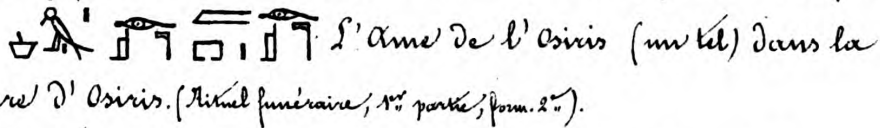 L'ame de l'Osiris (un tel) dans la
re d'Osiris. (Rituel funéraire, 1re partie, form. 2e).